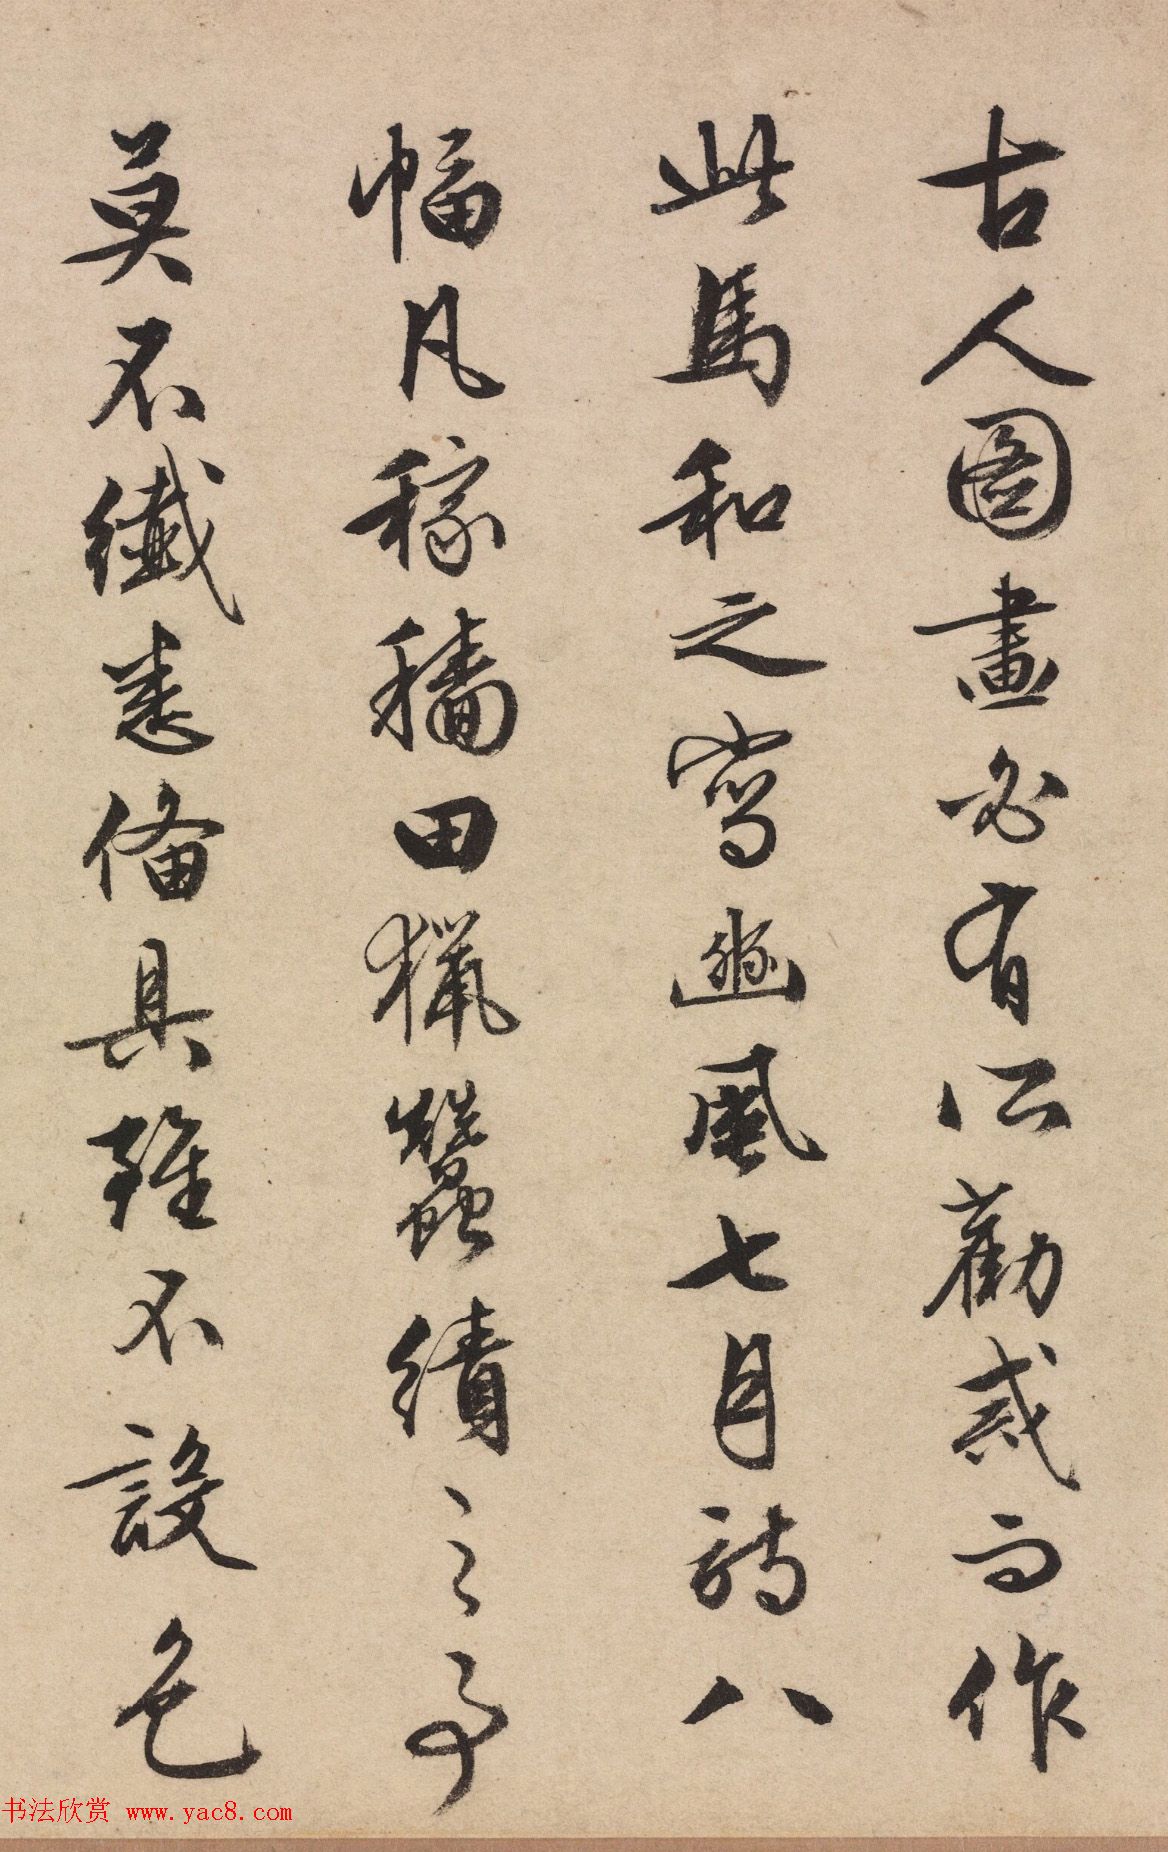 古人圖畫必有所勸戒而作
此馬和之寫豳風七月詩八
幅凡稼穡田獵蠶績之事
莫不纖悉備具雖不設色
书法欣赏 www.yac8.com